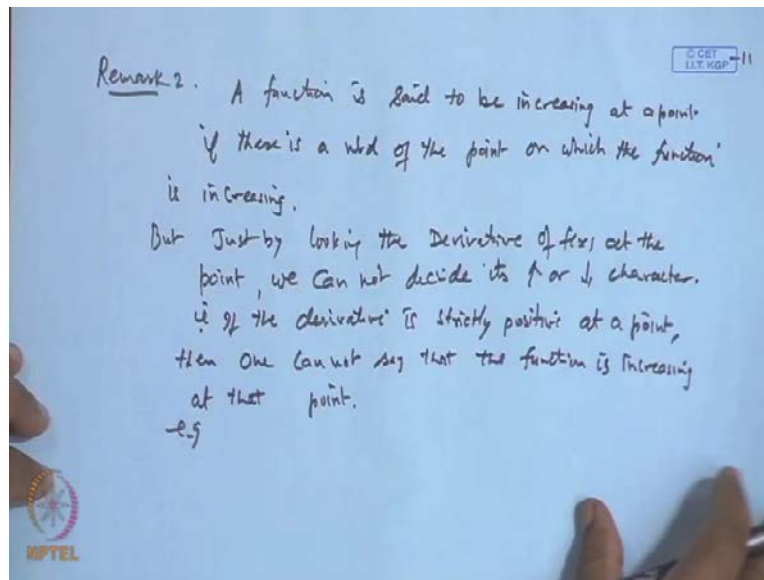 © CET
I.I.T. KGP
-11
Remark 2. A function is said to be increasing at a point
if there is a nbd of the point on which the function
is increasing.
But Just by looking the Derivative of f(x) at the
point, we can not decide its ↑ or ↓ character.
ie If the derivative is strictly positive at a point,
then one can not say that the function is increasing
at that point.
e.g
NPTEL